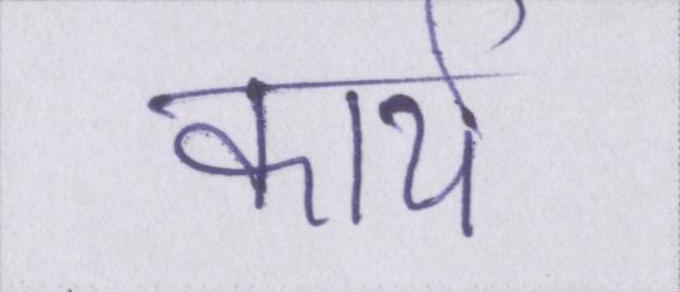 कार्य